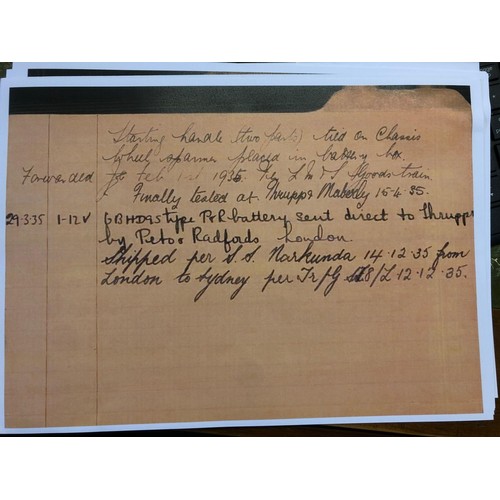 Starting handle (two parts) tied on Chassis
Wheel spanner placed in battery box.
Forwarded Feb 1st 1935. Per L M & S Goods train
Finally tested at Thrupp & Maberly 15-4-35.
29.3.35 1-12V 6BH095 type P&R battery sent direct to Thrupps
by Peto & Radfords London.
Shipped per S.S. Narkunda 14.12.35 from
London to Sydney per Tr/G 8/L 12.12.35.